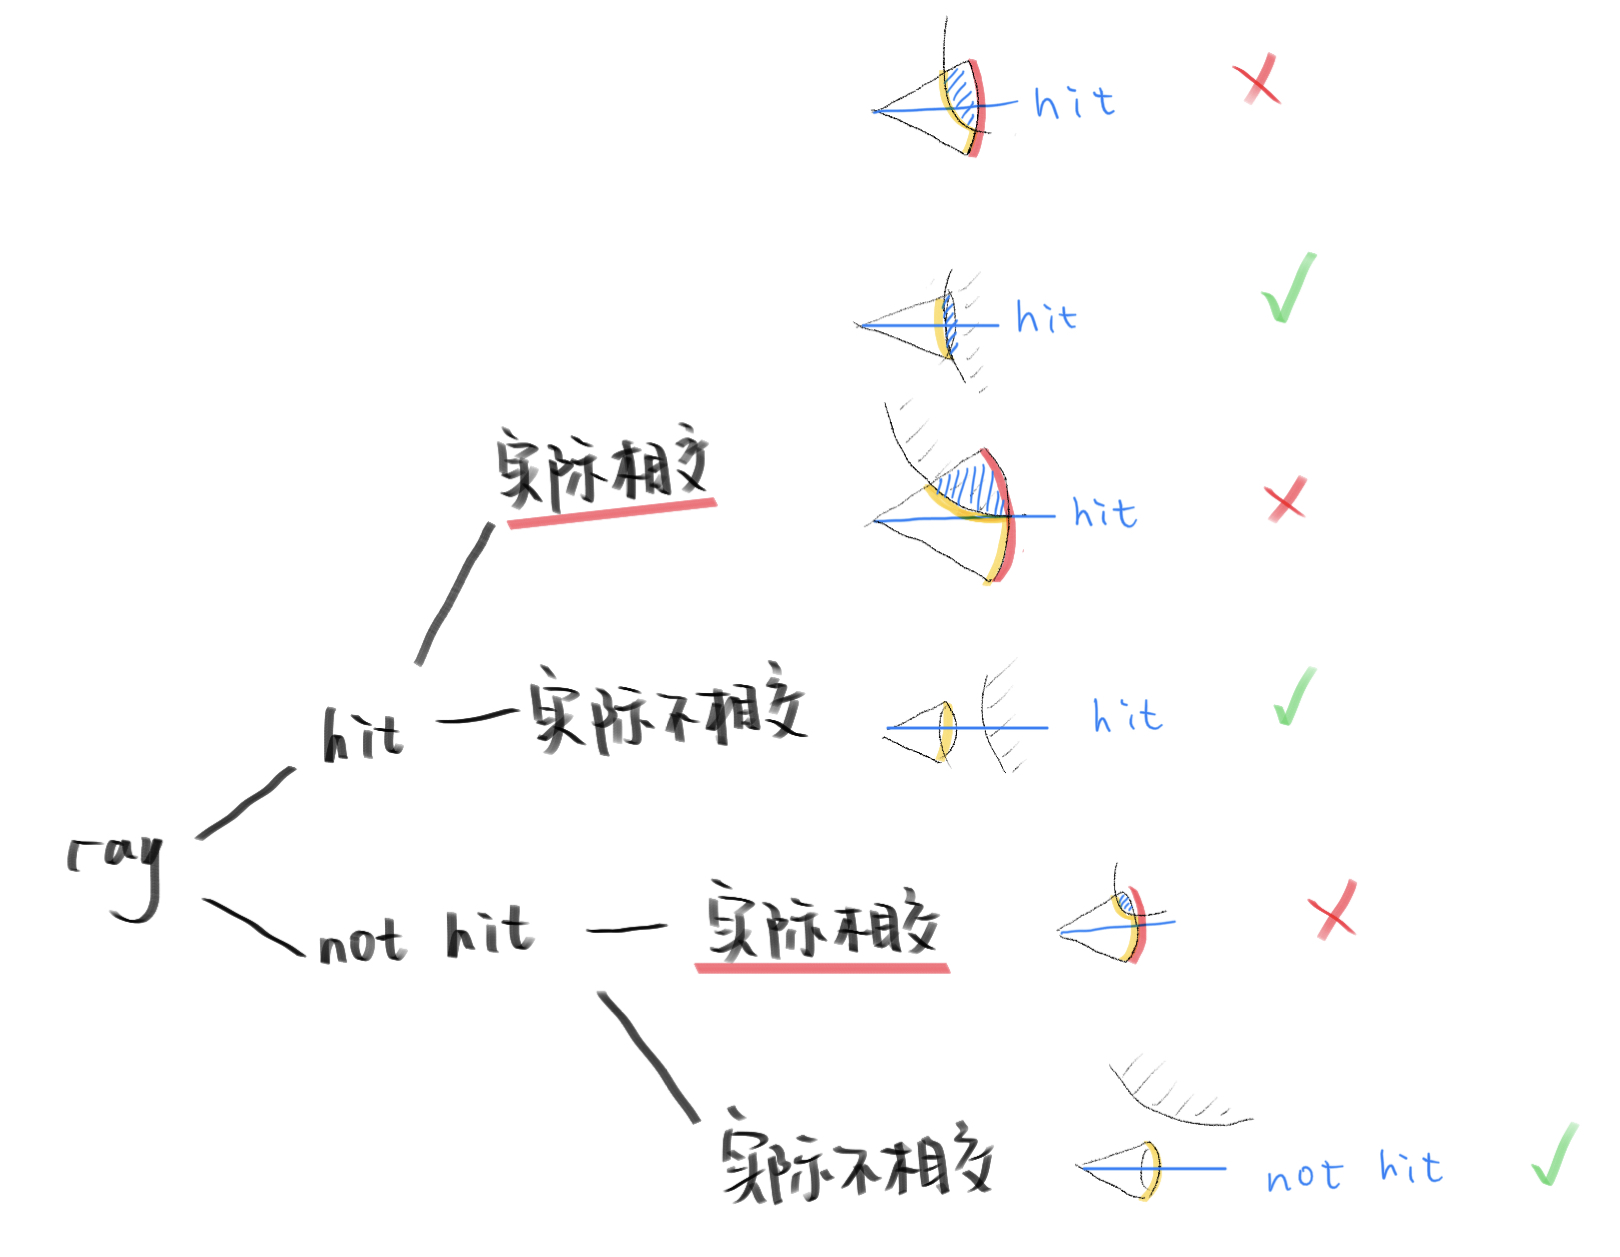 hit
hit
实际相交
hit
hit 实际不相交 hit
ray
not hit 实际相交
实际不相交 not hit